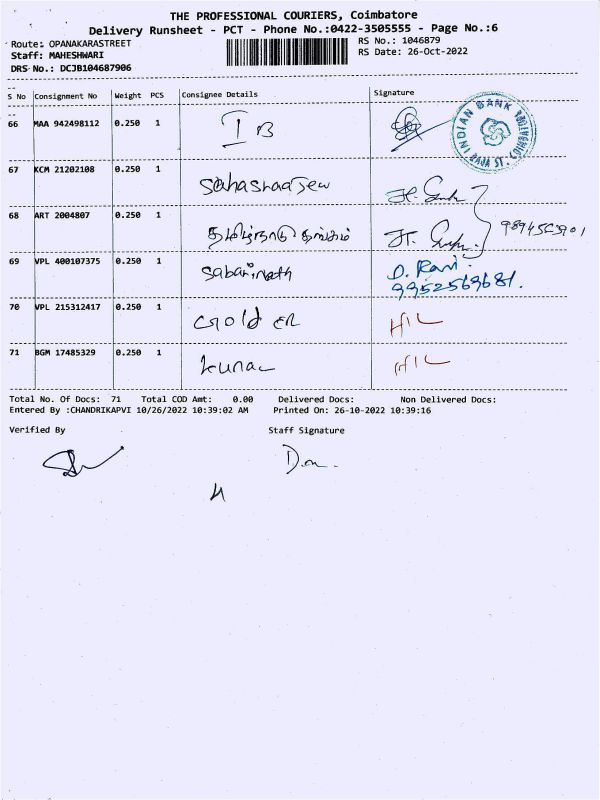 THE PROFESSIONAL COURIERS, Coimbatore
Delivery Runsheet - PCT - Phone No.:0422-3505555 - Page No.:6
Route: OPANAKARASTREET
Staff: MAHESHWARI
DRS No.: DCJB104687906
RS No.: 1046879
RS Date: 26-Oct-2022
S No Consignment No Weight PCS Consignee Details Signature
66 MAA 942498112 0.250 1 IB
INDIAN BANK
RAJA ST.
67 KCM 21202108 0.250 1
68 ART 2004807 0.250 1 தமிழ்நாடு தங்கம்
69 VPL 400107375 0.250 1 Sabarinath D. Ravi
9952569681.
70 VPL 215312417 0.250 1 Gold ER H/L
71 BGM 17485329 0.250 1 kunal H/L
Total No. Of Docs: 71 Total COD Amt: 0.00 Delivered Docs: Non Delivered Docs:
Entered By :CHANDRIKAPVI 10/26/2022 10:39:02 AM Printed On: 26-10-2022 10:39:16
Verified By Staff Signature